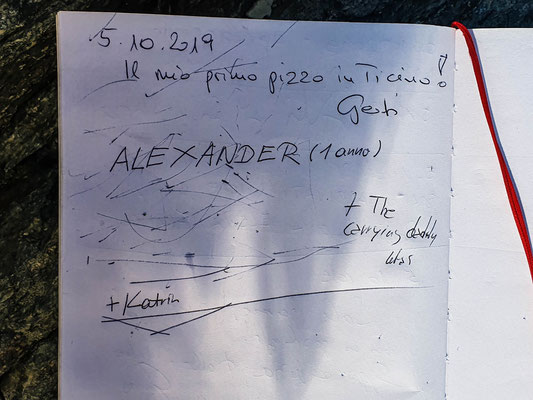 5.10.2019
Il mio primo pizzo in Ticino!
ALEXANDER (1 anno)
+ The
carrying daddy
+ Katrin